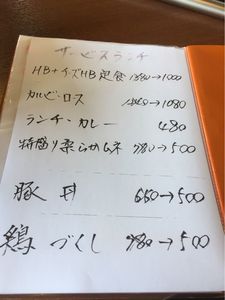 サービスランチ
HB+チーズHB定食 1380→1000
カルビ・ロース 1460→1080
ランチ・カレー 480
特盛り柔らかムネ 780→500
豚丼 650→500
鶏づくし 980→500